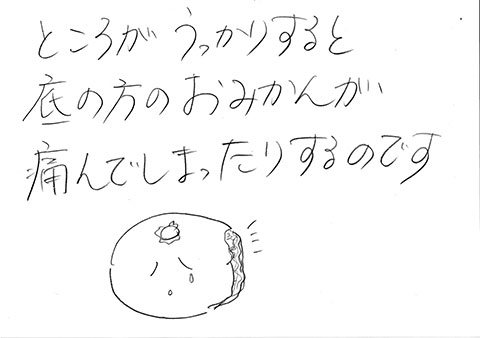 ところがうっかりすると
底の方のおみかんが
痛んでしまったりするのです